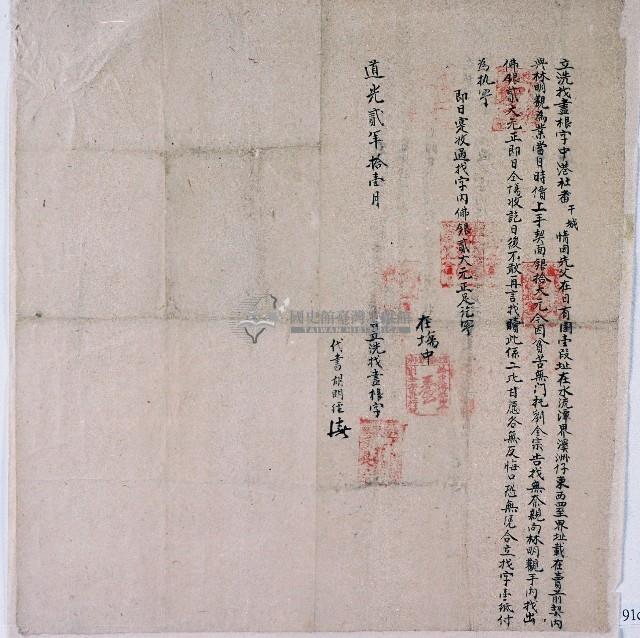 立洗找盡根字中港社番干城情因先父在日有園壹段址在水流潭界濠洲仔東西四至界址載在賣前契內
與林明觀為業當日時價上手契面銀拾大元今因貧苦無门托劉全宗告找無奈親向林明觀手內找出
佛銀貳大元正即日仝收訖日後不敢再言找贖此係二比甘愿各無反悔口恐無凭合立找字壹紙付
為执字
即日寔收過找字內佛銀貳大元正足訖字
在場中
道光貳年拾壹月
日立洗找盡根字
代書胡明
國史館臺灣文獻館
TAIWAN HISTORICA